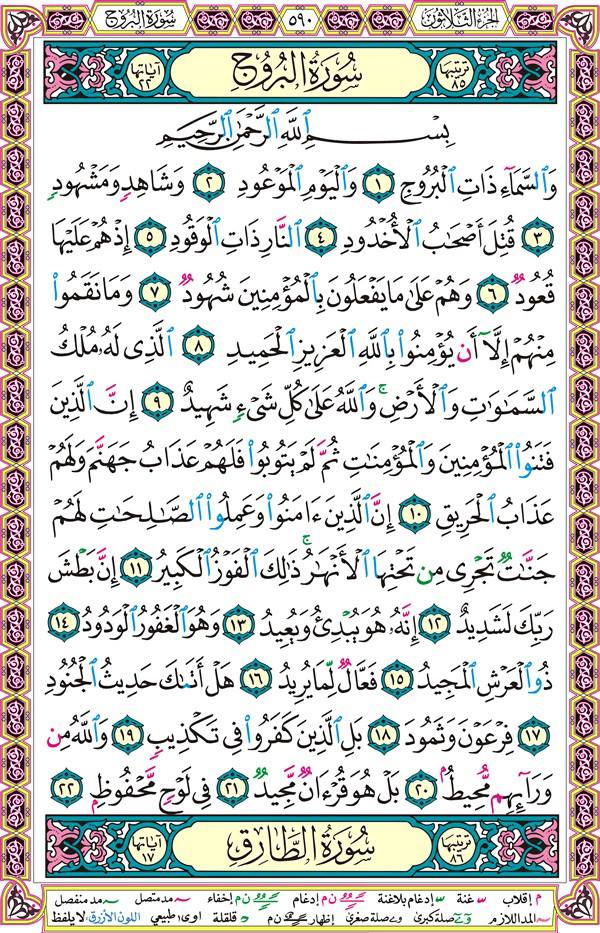 الجزء الثلاثون
٥٩٠
سورة البروج
ترتيبها ٨٥
سُورَةُ الْبُرُوجِ
آياتها ٢٢
بِسْمِ ٱللَّهِ ٱلرَّحْمَٰنِ ٱلرَّحِيمِ
وَٱلسَّمَآءِ ذَاتِ ٱلْبُرُوجِ ١ وَٱلْيَوْمِ ٱلْمَوْعُودِ ٢ وَشَاهِدٍ وَمَشْهُودٍ
٣ قُتِلَ أَصْحَٰبُ ٱلْأُخْدُودِ ٤ ٱلنَّارِ ذَاتِ ٱلْوَقُودِ ٥ إِذْ هُمْ عَلَيْهَا
قُعُودٌ ٦ وَهُمْ عَلَىٰ مَا يَفْعَلُونَ بِٱلْمُؤْمِنِينَ شُهُودٌ ٧ وَمَا نَقَمُوا۟
مِنْهُمْ إِلَّآ أَن يُؤْمِنُوا۟ بِٱللَّهِ ٱلْعَزِيزِ ٱلْحَمِيدِ ٨ ٱلَّذِى لَهُۥ مُلْكُ
ٱلسَّمَٰوَٰتِ وَٱلْأَرْضِ ۚ وَٱللَّهُ عَلَىٰ كُلِّ شَىْءٍ شَهِيدٌ ٩ إِنَّ ٱلَّذِينَ
فَتَنُوا۟ ٱلْمُؤْمِنِينَ وَٱلْمُؤْمِنَٰتِ ثُمَّ لَمْ يَتُوبُوا۟ فَلَهُمْ عَذَابُ جَهَنَّمَ وَلَهُمْ
عَذَابُ ٱلْحَرِيقِ ١٠ إِنَّ ٱلَّذِينَ ءَامَنُوا۟ وَعَمِلُوا۟ ٱلصَّٰلِحَٰتِ لَهُمْ
جَنَّٰتٌ تَجْرِى مِن تَحْتِهَا ٱلْأَنْهَٰرُ ۚ ذَٰلِكَ ٱلْفَوْزُ ٱلْكَبِيرُ ١١ إِنَّ بَطْشَ
رَبِّكَ لَشَدِيدٌ ١٢ إِنَّهُۥ هُوَ يُبْدِئُ وَيُعِيدُ ١٣ وَهُوَ ٱلْغَفُورُ ٱلْوَدُودُ ١٤
ذُو ٱلْعَرْشِ ٱلْمَجِيدُ ١٥ فَعَّالٌ لِّمَا يُرِيدُ ١٦ هَلْ أَتَىٰكَ حَدِيثُ ٱلْجُنُودِ
١٧ فِرْعَوْنَ وَثَمُودَ ١٨ بَلِ ٱلَّذِينَ كَفَرُوا۟ فِى تَكْذِيبٍ ١٩ وَٱللَّهُ مِن
وَرَآئِهِم مُّحِيطٌ ٢٠ بَلْ هُوَ قُرْءَانٌ مَّجِيدٌ ٢١ فِى لَوْحٍ مَّحْفُوظٍ ٢٢
ترتيبها ٨٦
سُورَةُ الطَّارِقِ
آياتها ١٧
م إقلاب غنة إدغام بلاغنة ن م إدغام ن م إخفاء مد متصل مد منفصل
المد اللازم صلة كبرى صلة صغرى إظهار ن م قلقلة اوى طبيعي اللون الأزرق لا يلفظ